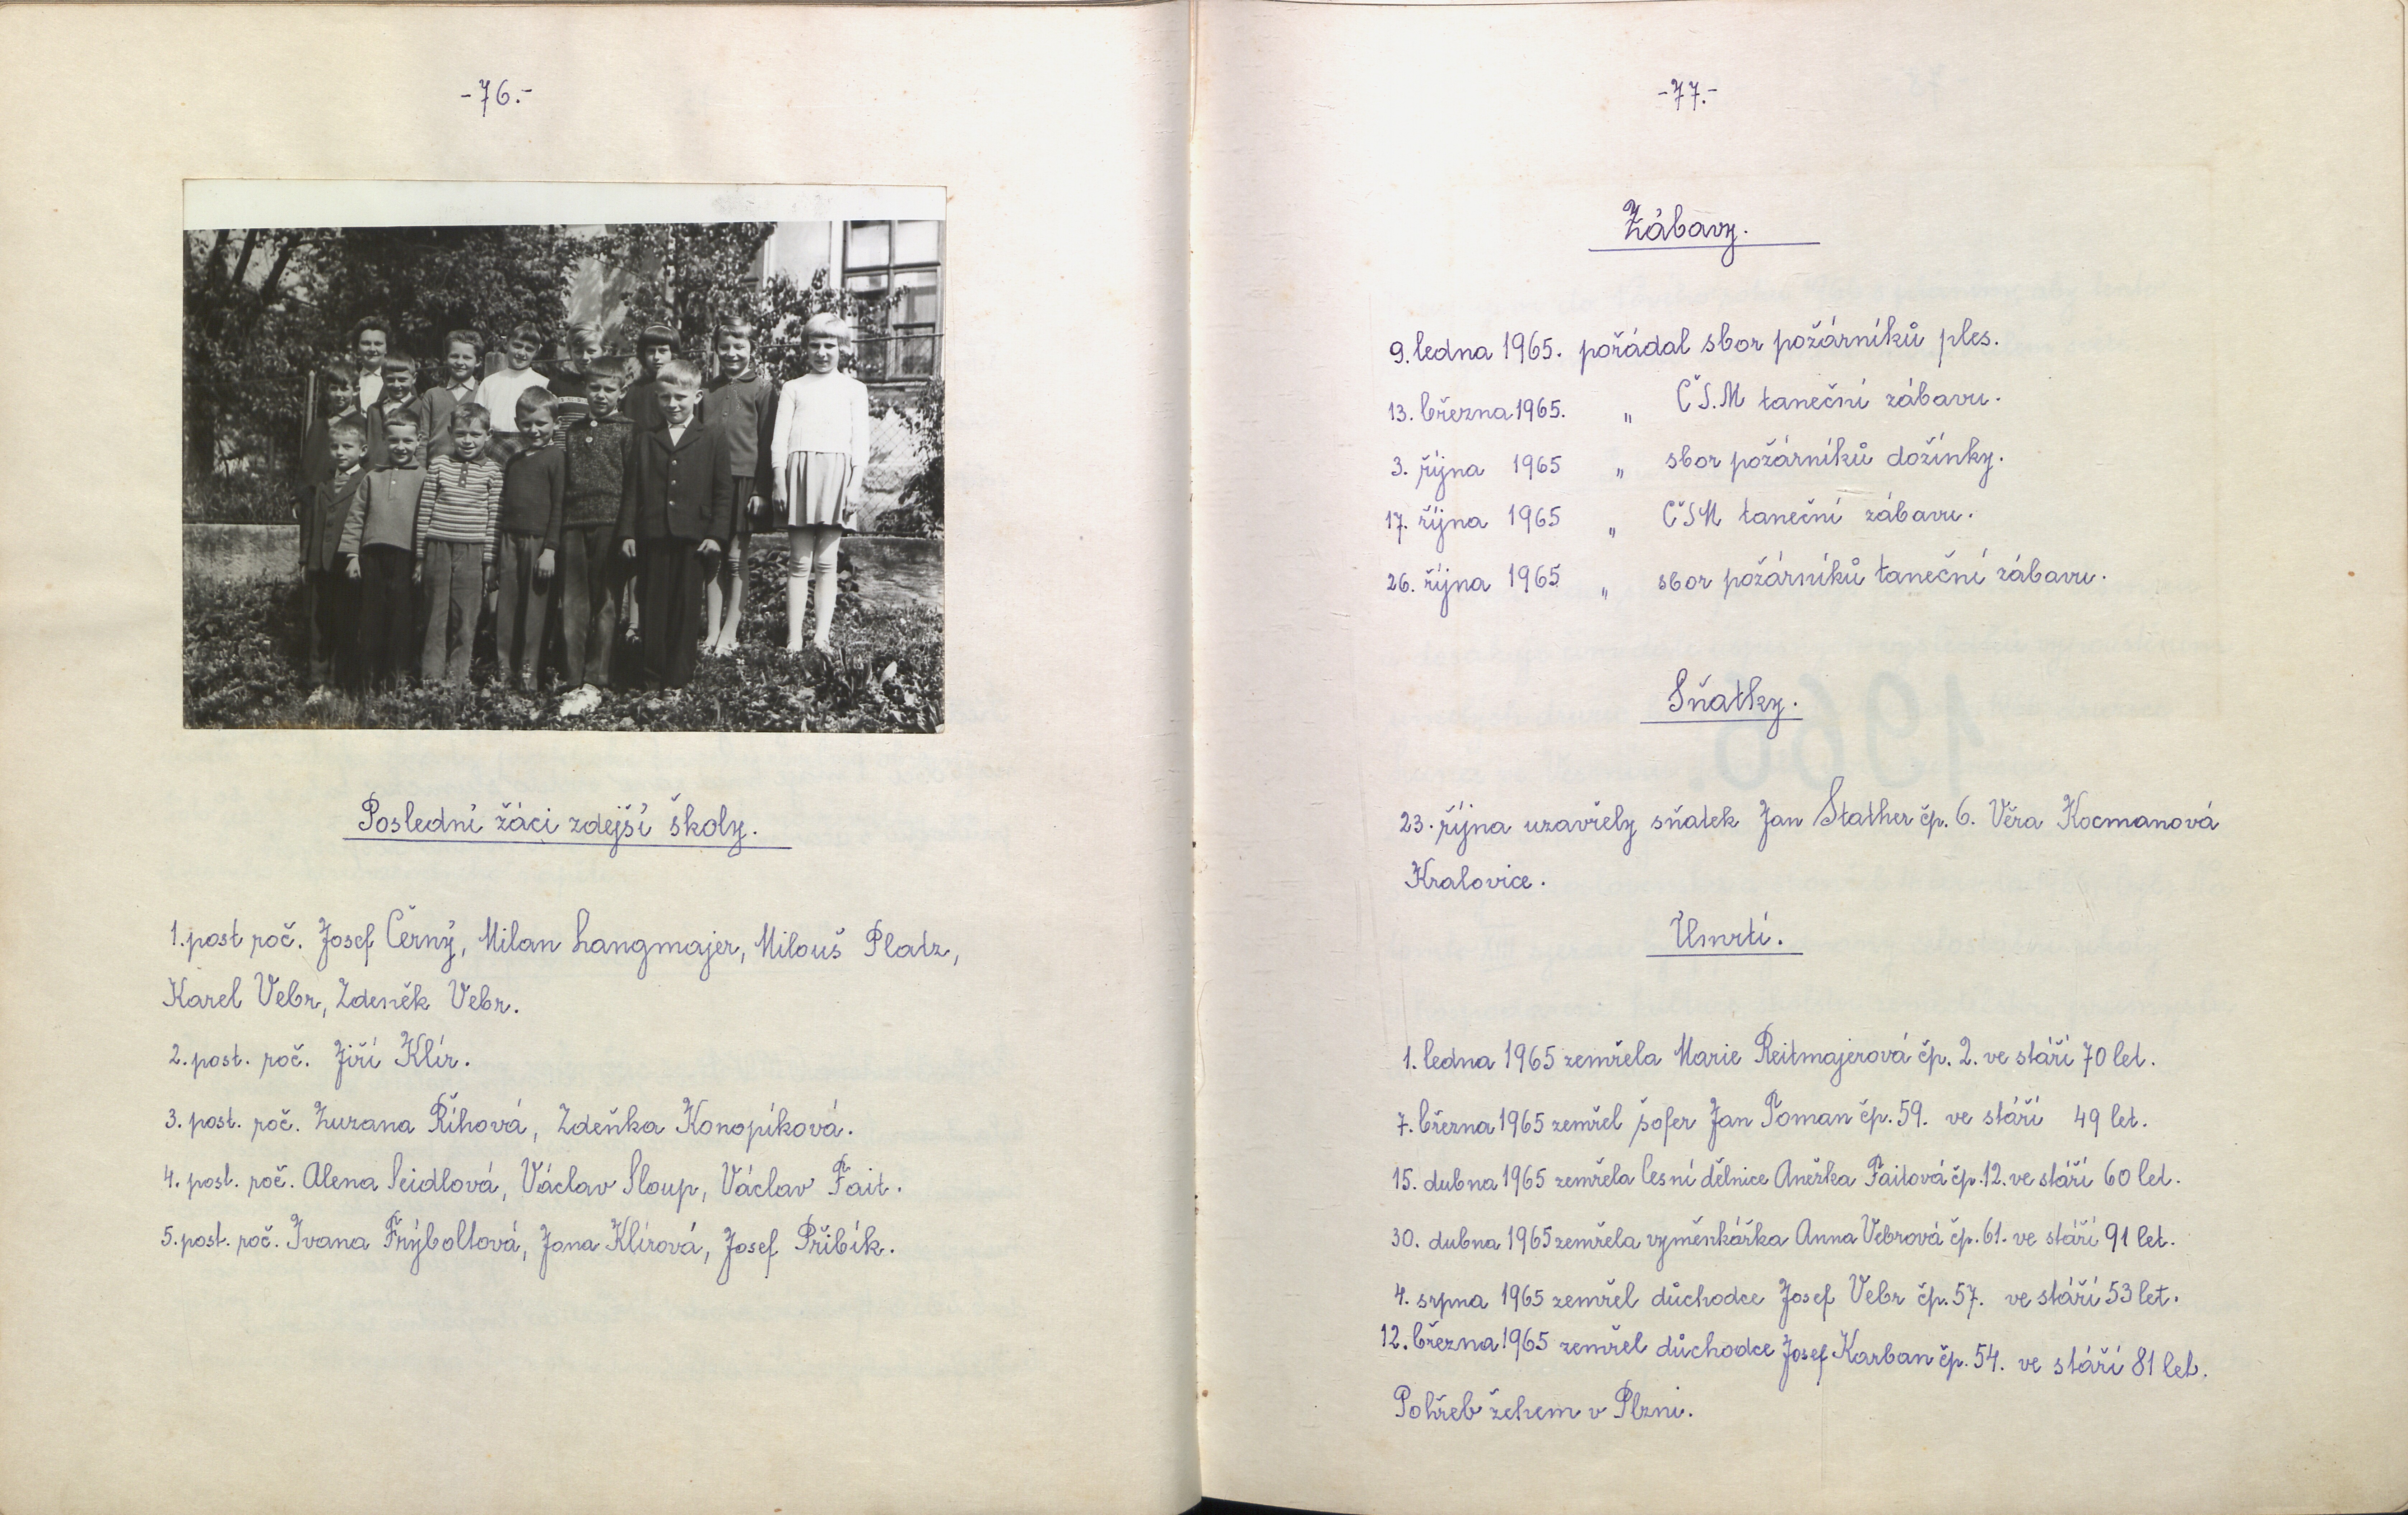 -76.-
Poslední žáci zdejší školy.
1. post roč. Josef Černý, Milan Langmajer, Milouš Platz,
Karel Vebr, Zdeněk Vebr.
2. post. roč. Jiří Klír.
3. post. roč. Zuzana Říhová, Zdeňka Konopíková.
4. post. roč. Alena Seidlová, Václav Sloup, Václav Fait.
5. post. roč. Ivana Frýboltová, Jana Klírová, Josef Přibík.
-77.-
Zábavy.
9. ledna 1965. pořádal sbor požárníků ples.
13. března 1965. „ ČS.M taneční zábavu.
3. října 1965 „ sbor požárníků dožínky.
17. října 1965 „ ČSM taneční zábavu.
26. října 1965 „ sbor požárníků taneční zábavu.
Sňatky.
23. října uzavřely sňatek Jan Stather čp. 6. Věra Kocmanová
Kralovice.
Úmrtí.
1. ledna 1965 zemřela Marie Reitmajerová čp. 2. ve stáří 70 let.
7. března 1965 zemřel šofer Jan Toman čp. 59. ve stáří 49 let.
15. dubna 1965 zemřela lesní dělnice Anežka Faitová čp. 12. ve stáří 60 let.
30. dubna 1965 zemřela vyměnkářka Anna Vebrová čp. 61. ve stáří 91 let.
4. srpna 1965 zemřel důchodce Josef Vebr čp. 57. ve stáří 53 let.
12. března 1965 zemřel důchodce Josef Karban čp. 54. ve stáří 81 let.
Pohřeb žehem v Plzni.